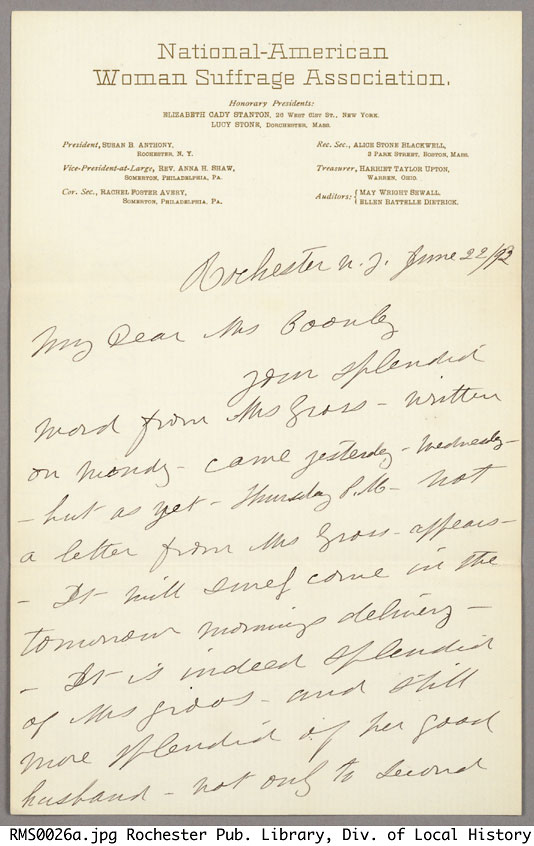 National-American
Woman Suffrage Association.
Honorary Presidents:
ELIZABETH CADY STANTON, 26 West 61st St., New York.
LUCY STONE, Dorchester, Mass.
President, SUSAN B. ANTHONY,
Rochester, N. Y.
Vice-President-at-Large, REV. ANNA H. SHAW,
Somerton, Philadelphia, Pa.
Cor. Sec., RACHEL FOSTER AVERY,
Somerton, Philadelphia, Pa.
Rec. Sec., ALICE STONE BLACKWELL,
3 Park Street, Boston, Mass.
Treasurer, HARRIET TAYLOR UPTON,
Warren, Ohio.
Auditors: { MAY WRIGHT SEWALL,
ELLEN BATTELLE DIETRICK.
Rochester N. Y. June 22/92
My Dear Mrs Coonley
Your splendid
word from Mrs Gross - written
on Monday - came yesterday - Wednesday -
- but as yet - Thursday P.M - not
a letter from Mrs Gross - appears -
- It will surely come in the
tomorrow mornings delivery -
- It is indeed splendid
of Mrs Gross - and still
more splendid of her good
husband - not only to second
RMS0026a.jpg Rochester Pub. Library, Div. of Local History